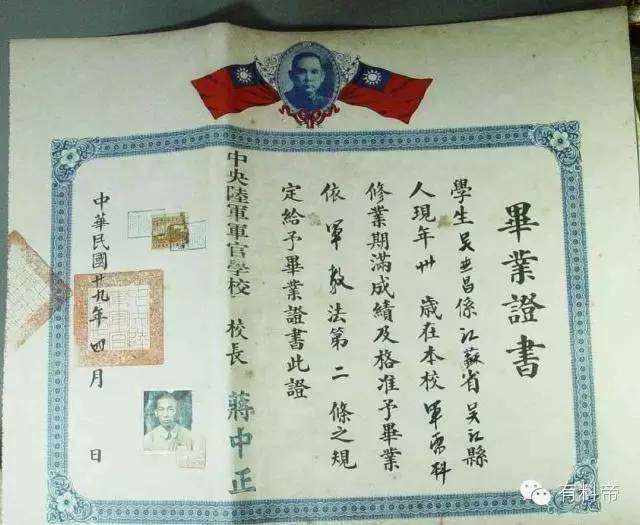 畢業證書
學生吳 昌係江蘇省吳江縣
人現年卅 歲在本校軍 科
修業期滿成績及格准予畢業
依 軍教法第二 條之規
定給予畢業證書此證
中央陸軍軍官學校 校長 蔣中正
中華民國廿九年四月 日
有料帝